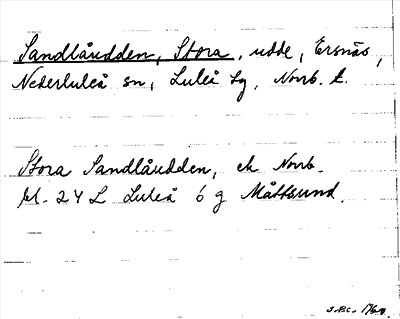 Sandlåudden, Stora, udde, Ersnäs,
Nederluleå sn, Luleå tg, Norrb. l.
Stora Sandlåudden, ek Norrb.
bl. 24 L Luleå 6 g Måttsund.